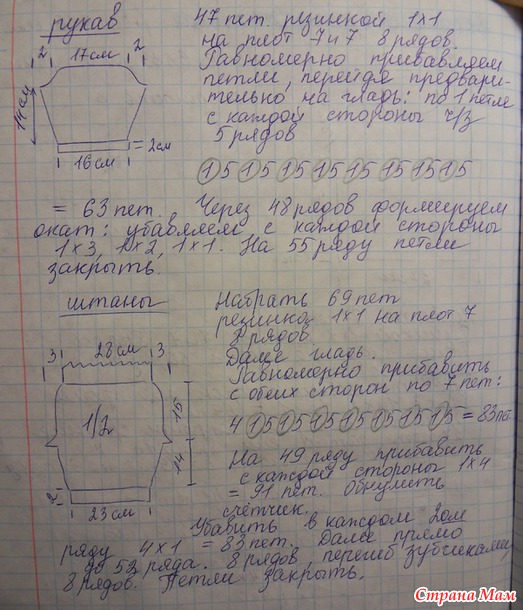 рукав
47 пет. резинкой 1х1
на плот 7 и 7 8 рядов.
Равномерно прибавляем
петли, перейдя предвари-
тельно на гладь: по 1 петле
с каждой стороны ч/з
5 рядов
2 17см 2
14см
= 2см
16см
15 15 15 15 15 15 15
= 63 пет. Через 48 рядов формируем
окат: убавляем с каждой стороны
1х3, 1х2, 1х1. На 55 ряду петли
закрыть.
штаны
Набрать 69 пет
резинка 1х1 на плот 7
8 рядов
Далее гладь.
Равномерно прибавить
с обеих сторон по 7 пет:
3 28см 3
1/2
15
14
2
23см
4 15 15 15 15 15 15 15 = 83 пет
На 49 ряду прибавить
с каждой стороны 1х4
= 91 пет. Обнулить
счётчик.
Убавить в каждом 2ом
ряду 4х1 = 83 пет. Далее прямо
до 52 ряда. 8 рядов, перегиб зубчиками,
8 рядов. Петли закрыть.
Страна Мам